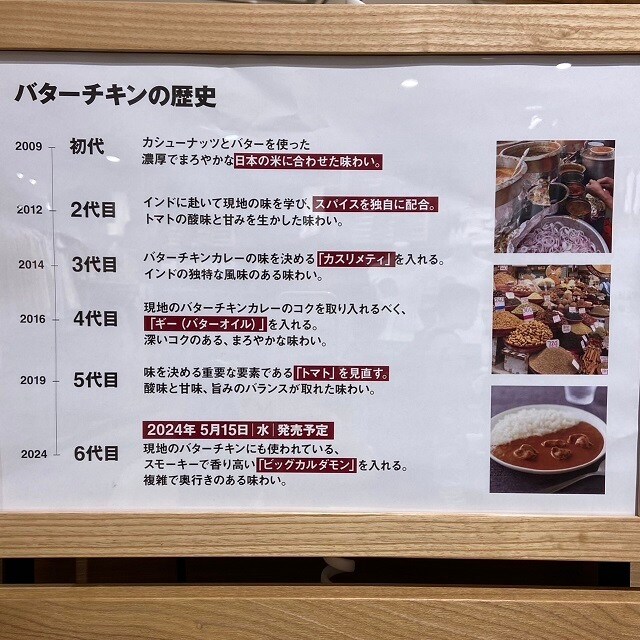 バターチキンの歴史
2009 初代
カシューナッツとバターを使った
濃厚でまろやかな日本の米に合わせた味わい。
2012 2代目
インドに赴いて現地の味を学び、スパイスを独自に配合。
トマトの酸味と甘みを生かした味わい。
2014 3代目
バターチキンカレーの味を決める「カスリメティ」を入れる。
インドの独特な風味のある味わい。
2016 4代目
現地のバターチキンカレーのコクを取り入れるべく、
「ギー（バターオイル）」を入れる。
深いコクのある、まろやかな味わい。
2019 5代目
味を決める重要な要素である「トマト」を見直す。
酸味と甘味、旨みのバランスが取れた味わい。
2024 6代目
2024年 5月15日|水|発売予定
現地のバターチキンにも使われている、
スモーキーで香り高い「ビッグカルダモン」を入れる。
複雑で奥行きのある味わい。